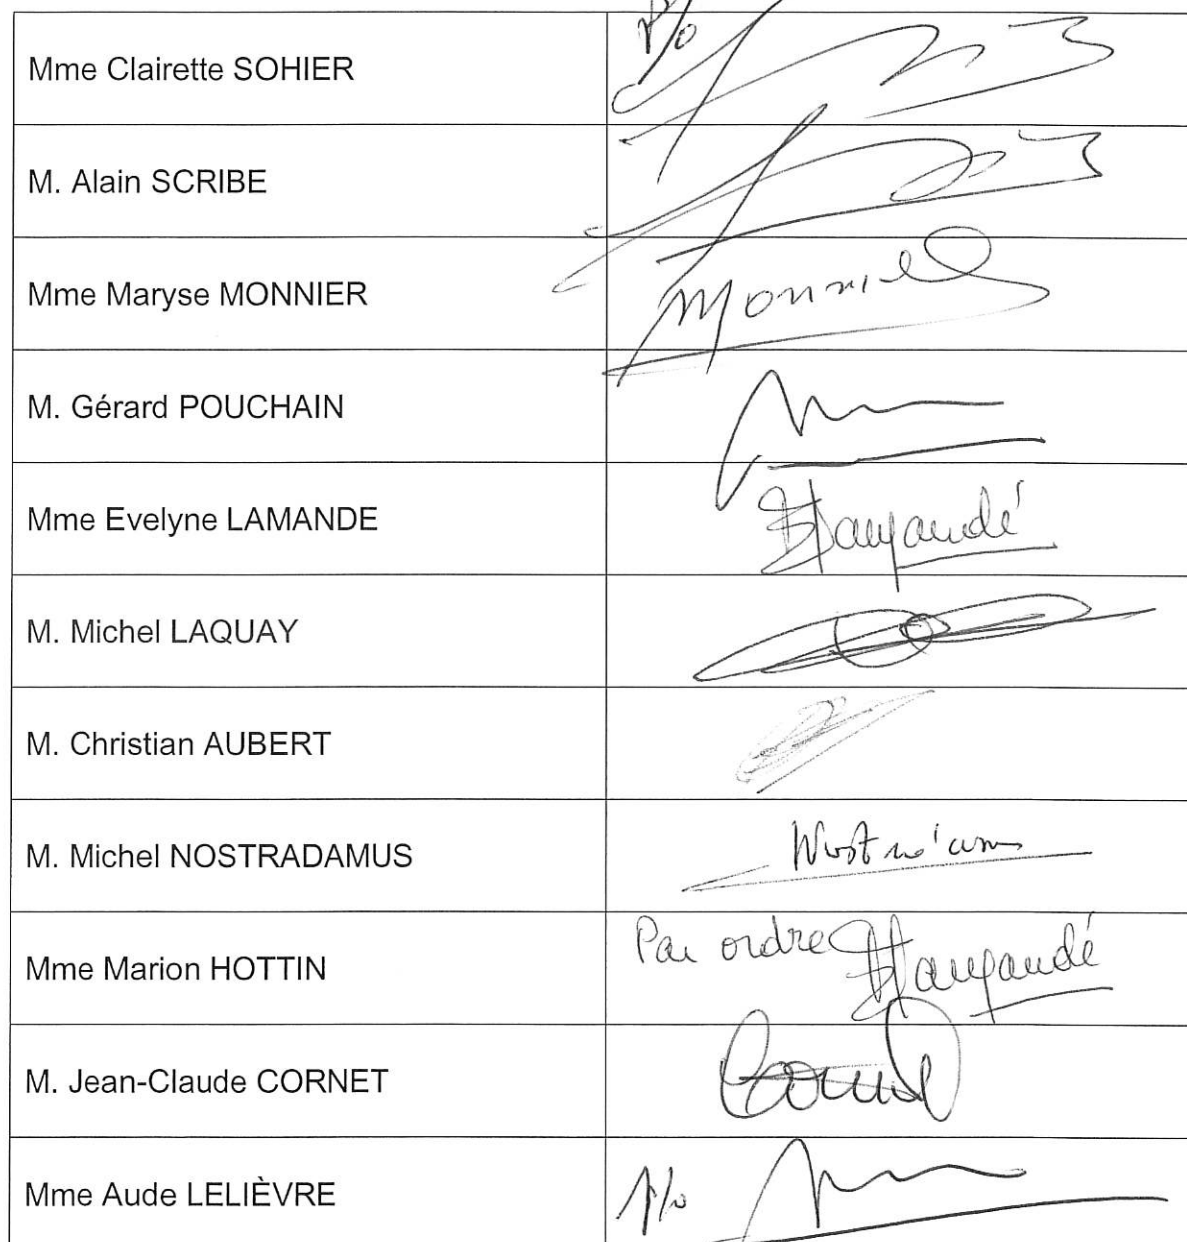 Mme Clairette SOHIER
P/o
M. Alain SCRIBE
Mme Maryse MONNIER
Monnier
M. Gérard POUCHAIN
Mme Evelyne LAMANDE
Lamandé
M. Michel LAQUAY
M. Christian AUBERT
M. Michel NOSTRADAMUS
Mme Marion HOTTIN
Par ordre Lamandé
M. Jean-Claude CORNET
Cornet
Mme Aude LELIÈVRE
P/o